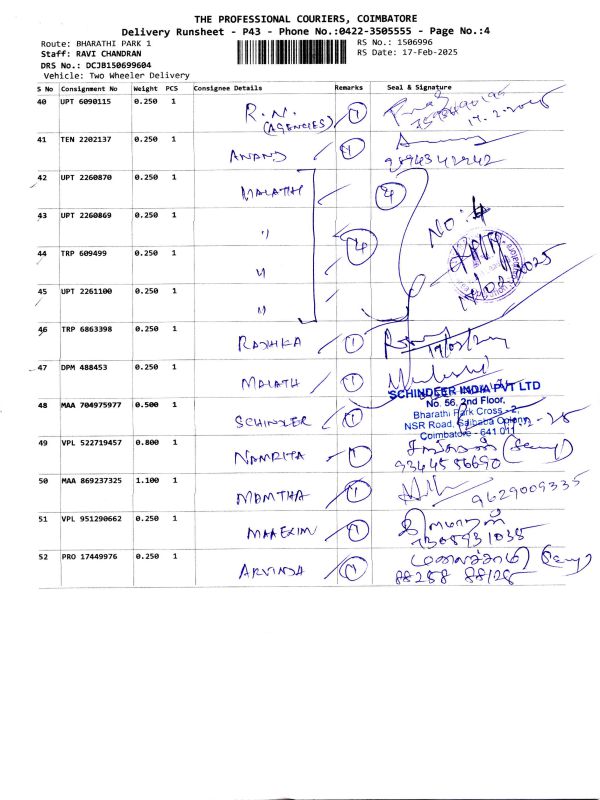 THE PROFESSIONAL COURIERS, COIMBATORE
Delivery Runsheet - P43 - Phone No.:0422-3505555 - Page No.:4
Route: BHARATHI PARK 1
RS No.: 1506996
Staff: RAVI CHANDRAN
RS Date: 17-Feb-2025
DRS No.: DCJB150699604
Vehicle: Two Wheeler Delivery
S No Consignment No Weight PCS Consignee Details Remarks Seal & Signature
40 UPT 6090115 0.250 1 R.N. (AGENCIES) 1
17.2.2025
41 TEN 2202137 0.250 1 ANAND 1
42 UPT 2260870 0.250 1 MALATH 4
43 UPT 2260869 0.250 1 " 4
NO: 4
44 TRP 609499 0.250 1 "
17/02/2025
45 UPT 2261100 0.250 1 "
46 TRP 6863398 0.250 1 RADHKA 1
47 DPM 488453 0.250 1 MALATH 1
SCHINDEER INDIA PVT LTD
No. 56, 2nd Floor,
48 MAA 704975977 0.500 1 SCHINDLER 1
Bharathi Park Cross - 2,
NSR Road, Saibaba Colony,
Coimbatore - 641 011
49 VPL 522719457 0.800 1 NAMRITA 1
9344556690
50 MAA 869237325 1.100 1 MAMTHA 1 9629009335
51 VPL 951290662 0.250 1 MAAEXIM 1 இளமாறன்
7305931035
52 PRO 17449976 0.250 1 ARVINDA 1
88258 88128